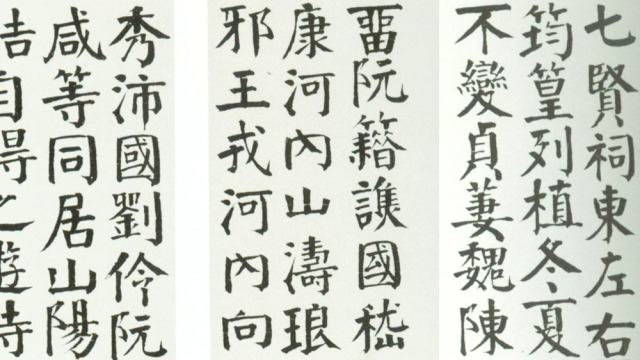 七賢祠東左右
筠篁列植冬夏
不變貞萋魏陳
畱阮籍譙國嵇
康河內山濤琅
邪王戎河內向
秀沛國劉伶阮
咸等同居山陽
結自得之遊時